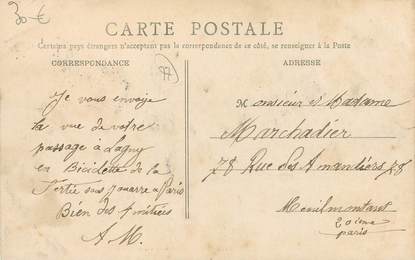 30 €
CARTE POSTALE
Certains pays étrangers n'acceptant pas la correspondance de ce côté, se renseigner à la Poste
CORRESPONDANCE
77
ADRESSE
Je vous envoie
la vue de votre
passage à Lagny
en Biciclette de la
Ferté sous jouarre a Paris
Bien des Amitiées
A M.
Monsieur & Madame
Marchadier
78 Rue des Amandiers 78
Menilmontant
20ieme
paris